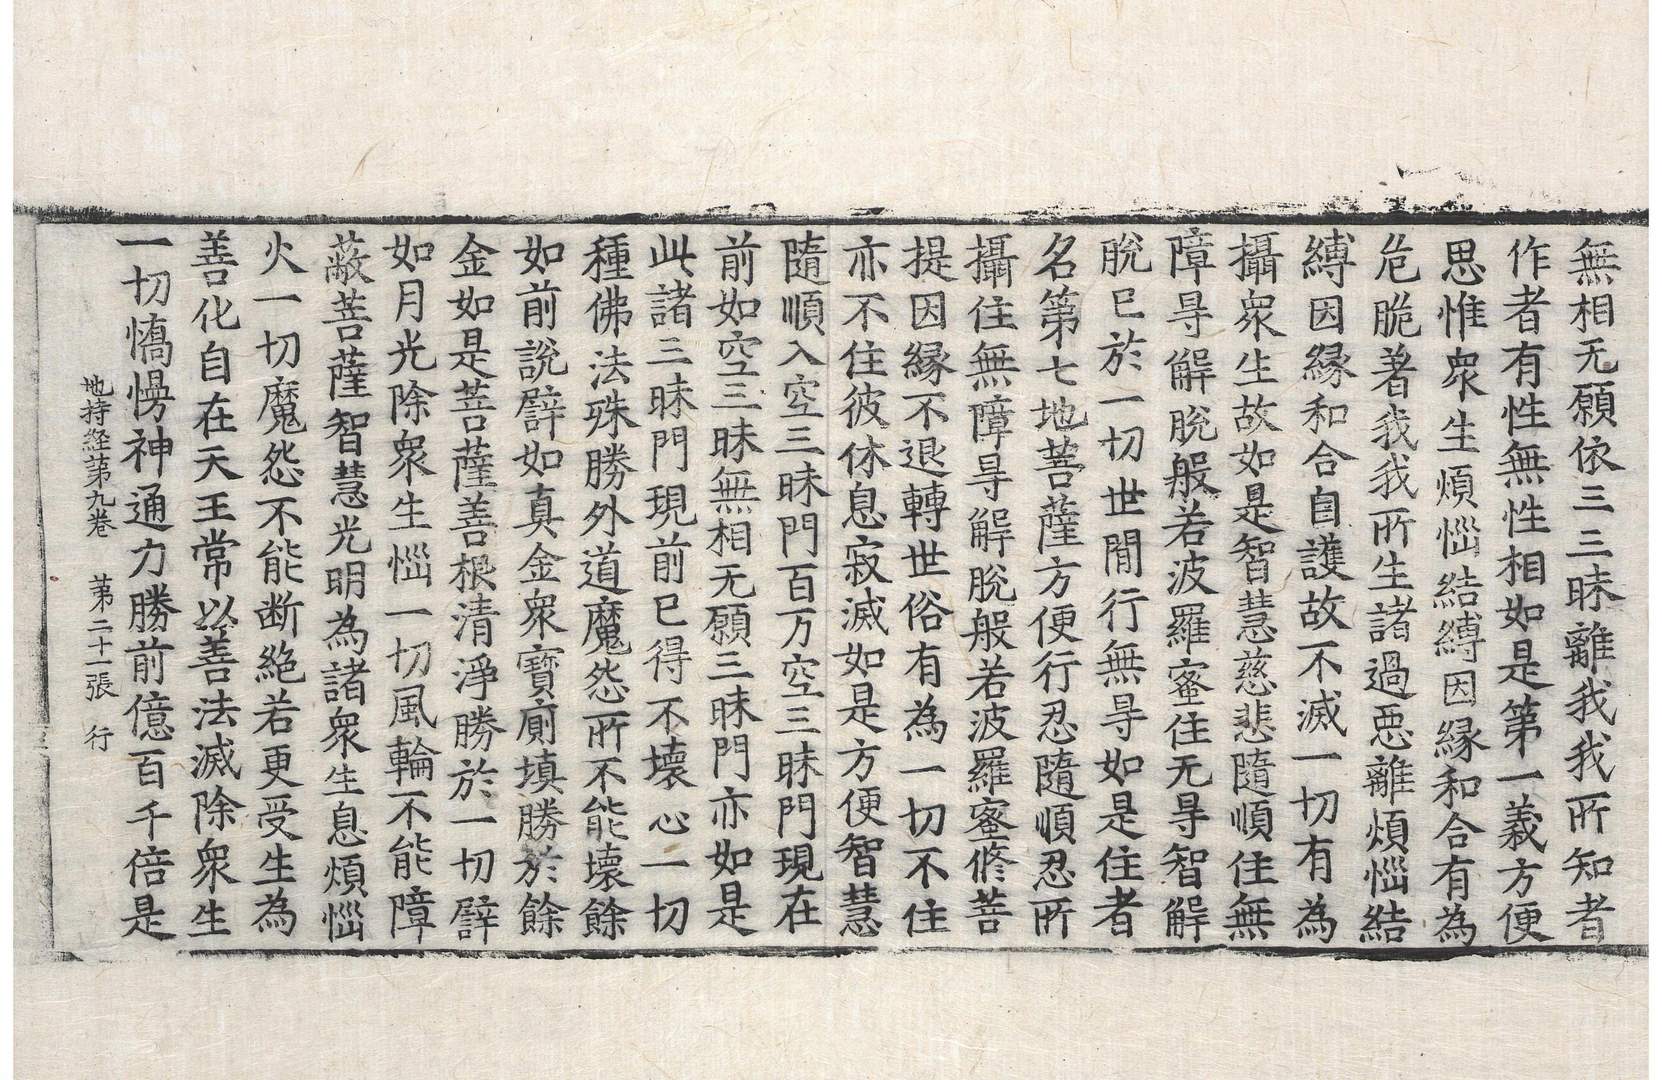 無相无願依三三昧離我我所知者
作者有性無性相如是第一義方便
思惟衆生煩惱結縛因縁和合有為
危脆著我我所生諸過惡離煩惱結
縛因縁和合自護故不滅一切有為
攝衆生故如是智慧慈悲隨順住無
障㝵解脫般若波羅蜜住无㝵智解
脫已於一切世間行無㝵如是住者
名第七地菩薩方便行忍隨順忍所
攝住無障㝵解脫般若波羅蜜修菩
提因縁不退轉世俗有為一切不住
亦不住彼休息寂滅如是方便智慧
隨順入空三昧門百万空三昧門現在
前如空三昧無相无願三昧門亦如是
此諸三昧門現前已得不壞心一切
種佛法殊勝外道魔怨所不能壞餘
如前說譬如真金衆寶廁填勝於餘
金如是菩薩善根清淨勝於一切譬
如月光除衆生惱一切風輪不能障
蔽菩薩智慧光明為諸衆生息煩惱
火一切魔怨不能断絶若更受生為
善化自在天王常以善法滅除衆生
一切憍慢神通力勝前億百千倍是
地持経第九卷 第二十一張 行